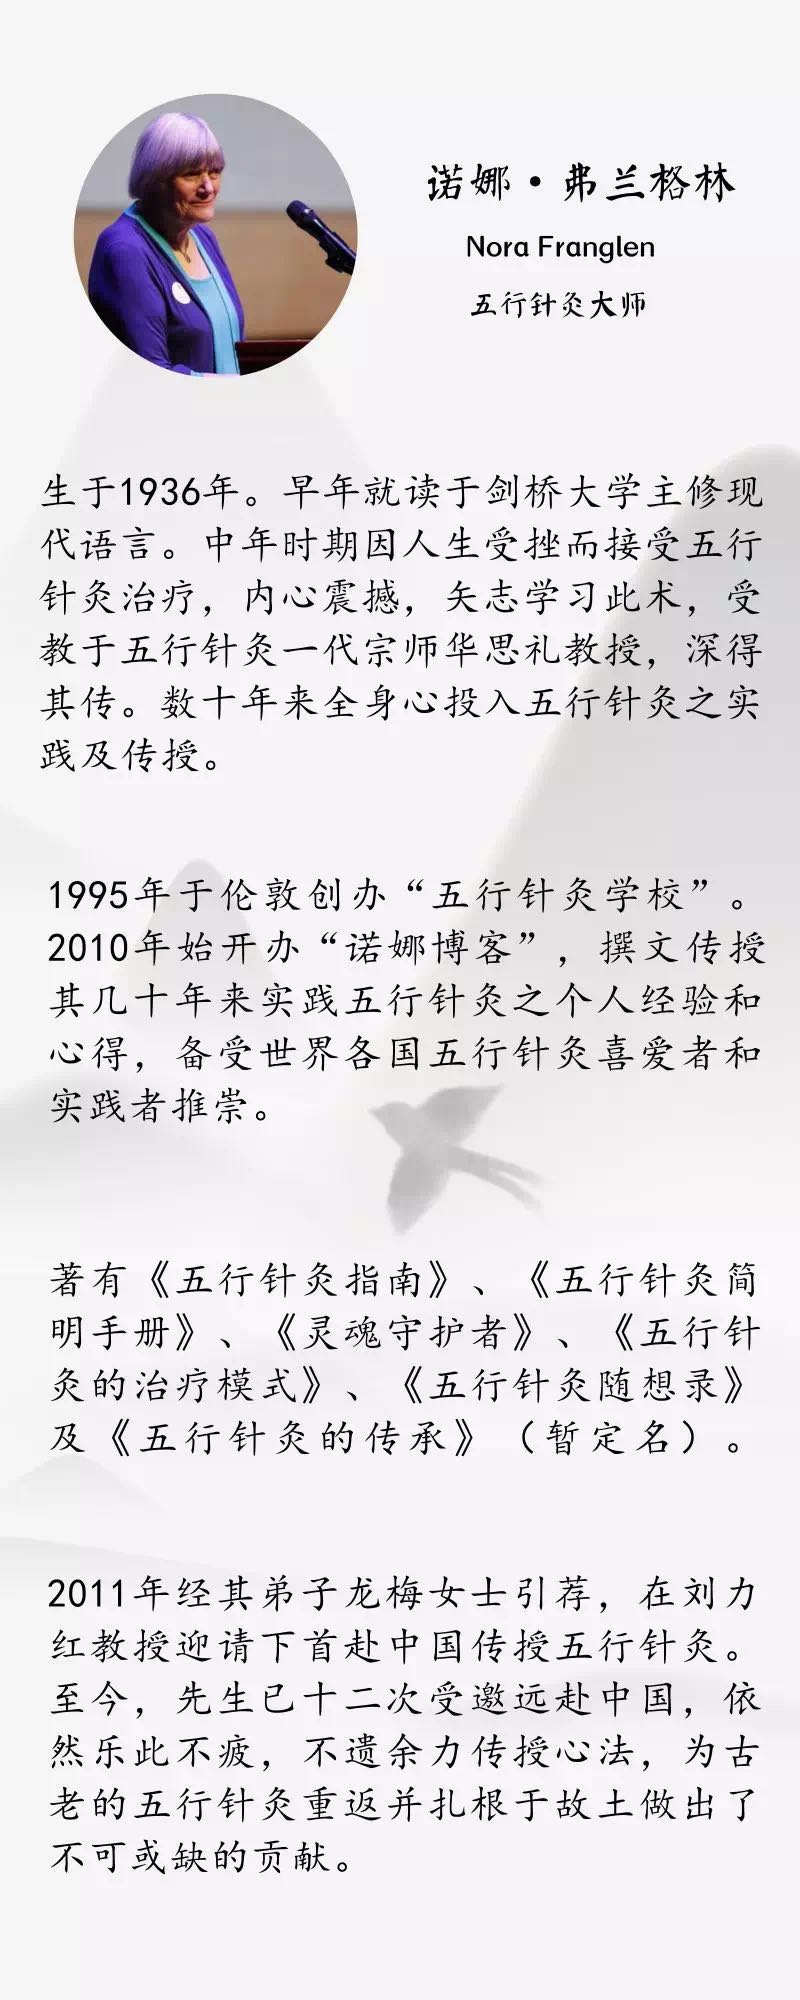 诺娜·弗兰格林
Nora Franglen
五行针灸大师
生于1936年。早年就读于剑桥大学主修现
代语言。中年时期因人生受挫而接受五行
针灸治疗，内心震撼，矢志学习此术，受
教于五行针灸一代宗师华思礼教授，深得
其传。数十年来全身心投入五行针灸之实
践及传授。
1995年于伦敦创办“五行针灸学校”。
2010年始开办“诺娜博客”，撰文传授
其几十年来实践五行针灸之个人经验和
心得，备受世界各国五行针灸喜爱者和
实践者推崇。
著有《五行针灸指南》、《五行针灸简
明手册》、《灵魂守护者》、《五行针
灸的治疗模式》、《五行针灸随想录》
及《五行针灸的传承》（暂定名）。
2011年经其弟子龙梅女士引荐，在刘力
红教授迎请下首赴中国传授五行针灸。
至今，先生已十二次受邀远赴中国，依
然乐此不疲，不遗余力传授心法，为古
老的五行针灸重返并扎根于故土做出了
不可或缺的贡献。